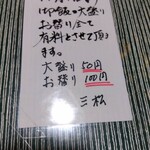 御飯の大盛り
お替り全て
有料とさせて頂き
ます。
大盛り 50円
お替り 100円
三松